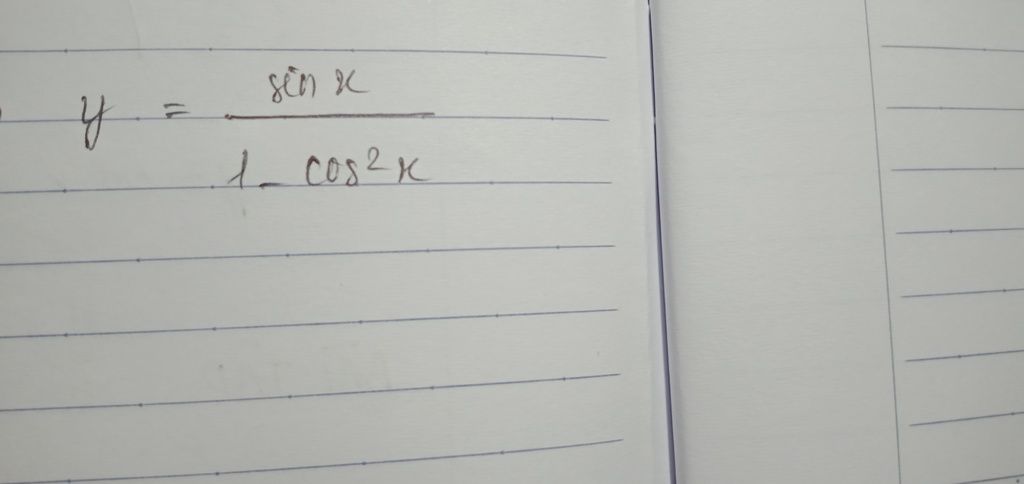 y = sin x / 1 - cos²x